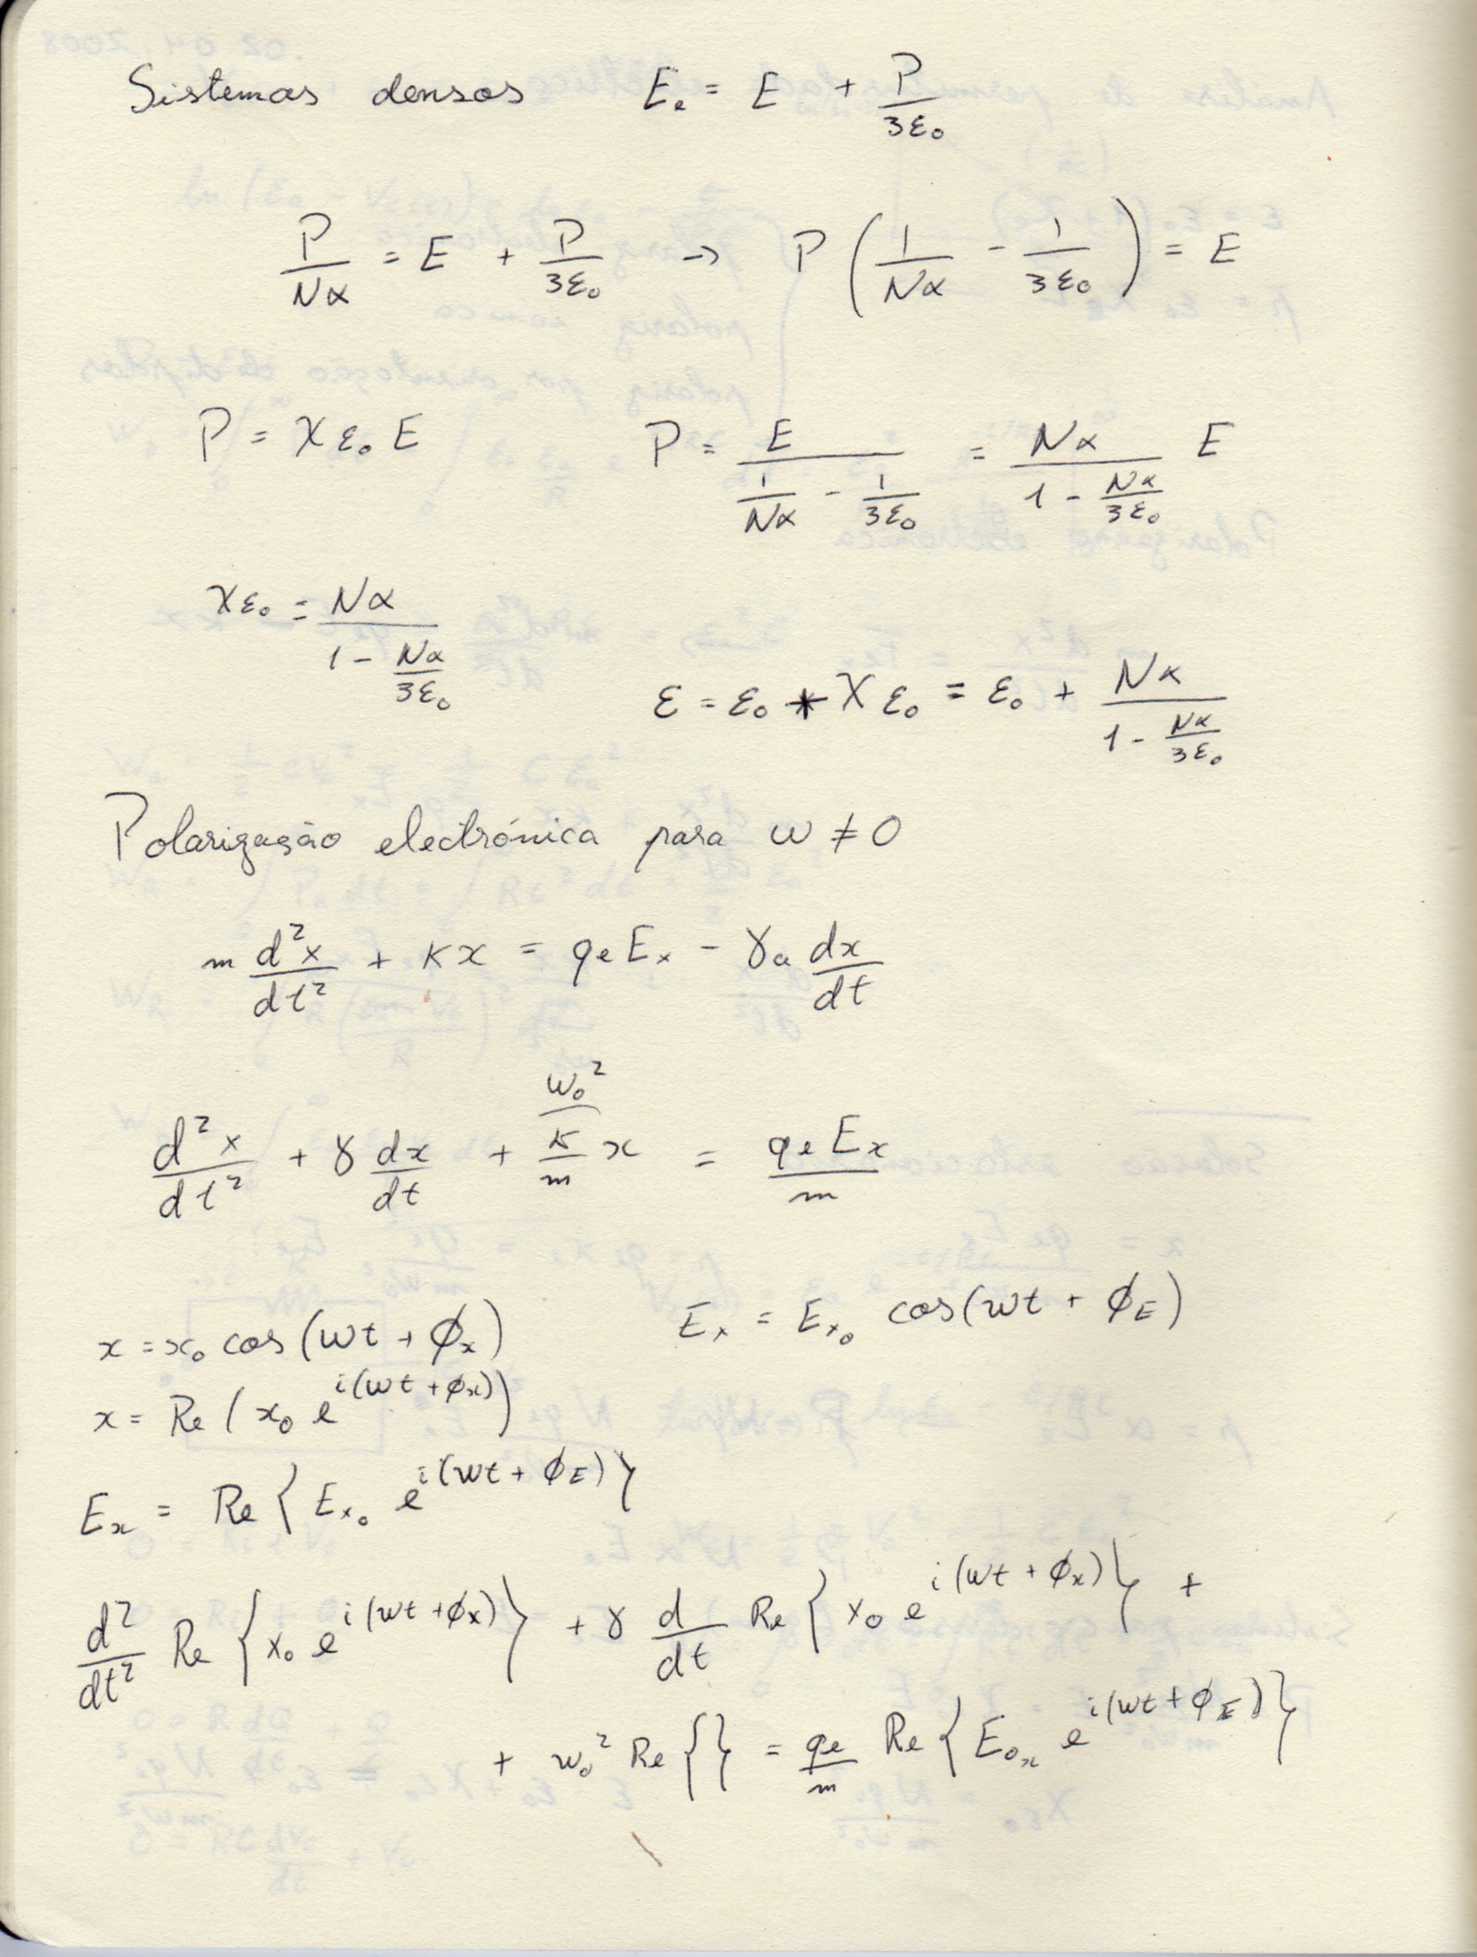 Sistemas densos E_e = E + P/(3ε₀)
P/(Nα) = E + P/(3ε₀) → P (1/(Nα) - 1/(3ε₀)) = E
P = χ ε₀ E P = E/(1/(Nα) - 1/(3ε₀)) = Nα/(1 - Nα/(3ε₀)) E
χε₀ = Nα/(1 - Nα/(3ε₀))
ε = ε₀ + χ ε₀ = ε₀ + Nα/(1 - Nα/(3ε₀))
Polarização electrónica para ω ≠ 0
m d²x/dt² + κx = q_e E_x - γ_a dx/dt
ω₀²
d²x/dt² + γ dx/dt + κ/m x = q_e E_x/m
x = x₀ cos(ωt + ϕ_x) E_x = E_x₀ cos(ωt + ϕ_E)
x = Re(x₀ e^{i(ωt + ϕ_x)})
E_x = Re{E_x₀ e^{i(ωt + ϕ_E)}}
d²/dt² Re{x₀ e^{i(ωt + ϕ_x)}} + γ d/dt Re{x₀ e^{i(ωt + ϕ_x)}} +
+ ω₀² Re{} = q_e/m Re{E₀ₓ e^{i(ωt + ϕ_E)}}